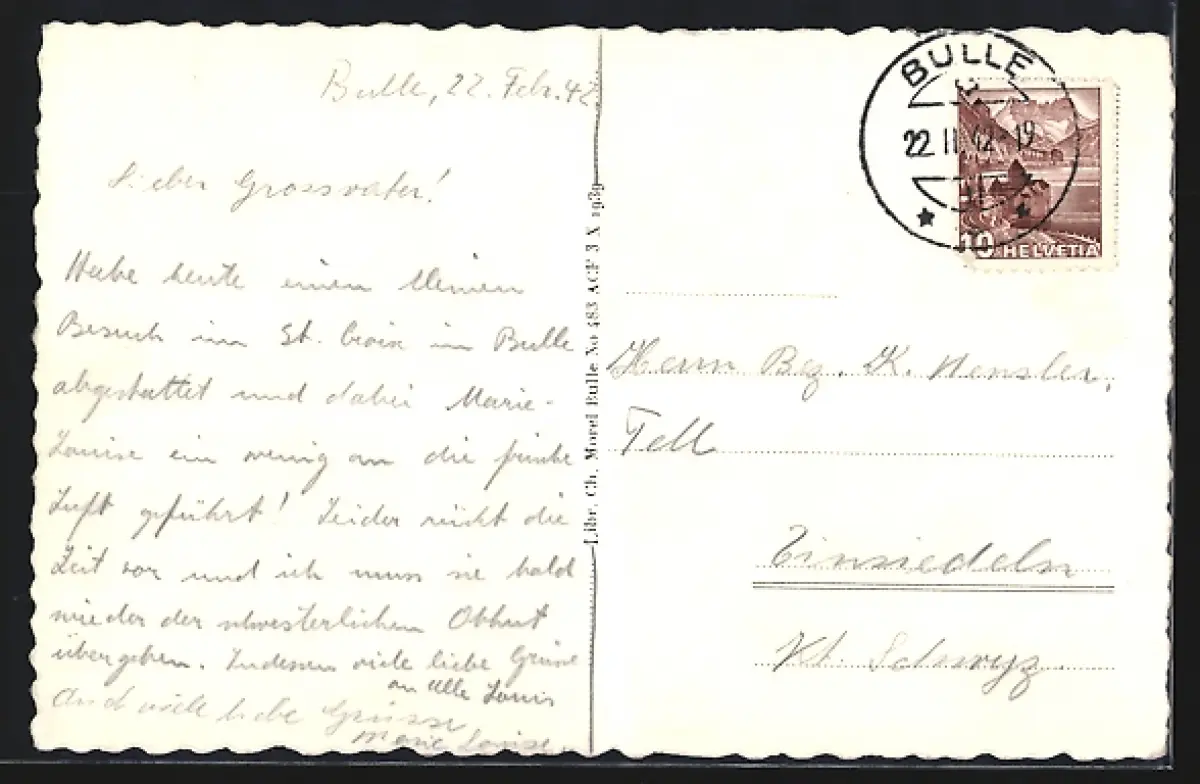 Bulle, 22. Febr. 42
Lieber Grossvater!
Habe heute einen kleinen
Besuch im St. Croix in Bulle
abgestattet und dabei Marie-
Louise ein wenig an die frische
Luft geführt! Leider rückt die
Zeit vor und ich muss sie bald
wieder der schwesterlichen Obhut
übergeben. Indessen viele liebe Grüsse
an alle Louis
und viele liebe Grüsse
Marie Louise
Libr. Ch. Morel Bulle No 483 ACF 3 X 1939
BULLE
22 II. 42-19
10 HELVETIA
Herrn Bez. K. Hensler,
Tell
Einsiedeln
Kt. Schwyz